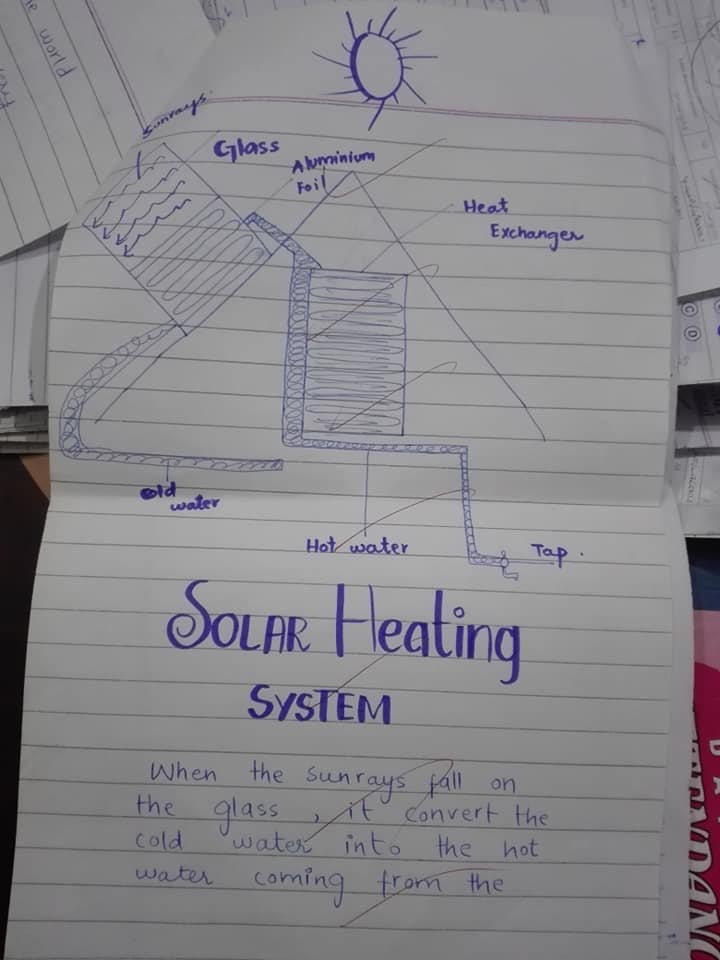 the world
sunrays.
Glass
Aluminium
Foil
Heat
Exchanger
cold
water
Hot water
Tap.
SOLAR Heating
SYSTEM
When the sunrays fall on
the glass, it convert the
cold water into the hot
water coming from the